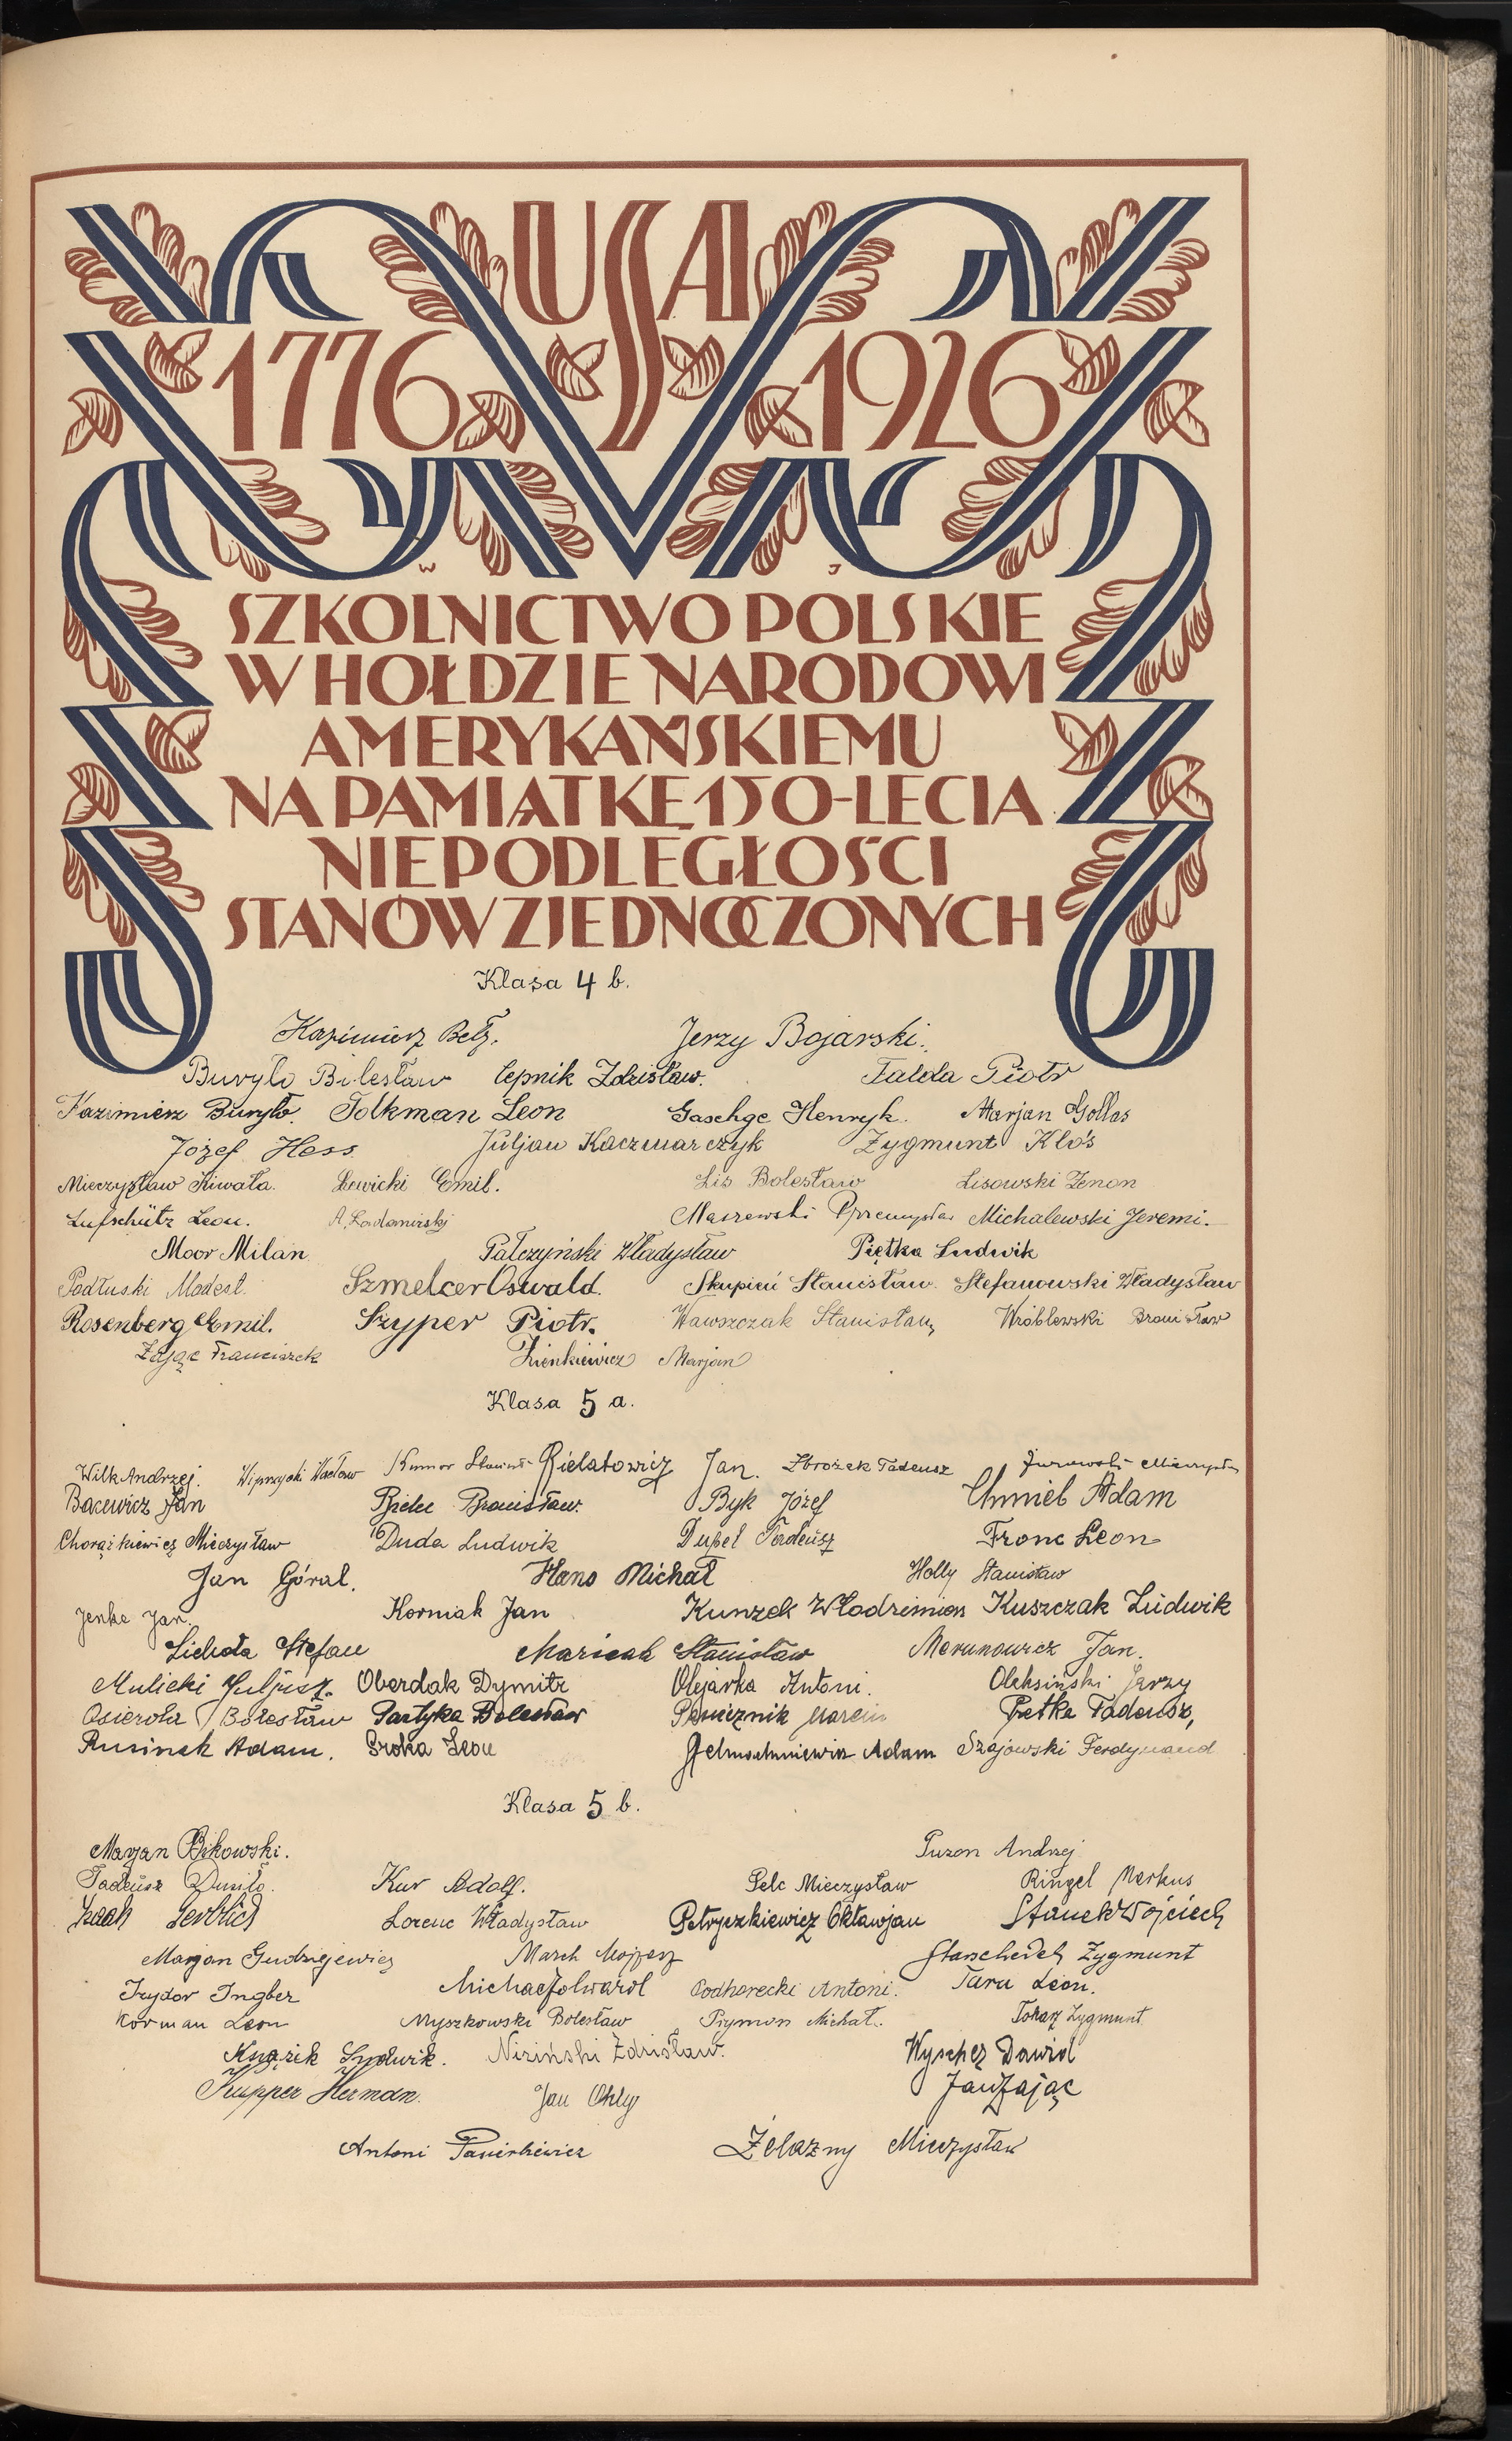 USA
1776 1926
W J
SZKOLNICTWO POLSKIE
W HOŁDZIE NARODOWI
AMERYKAŃSKIEMU
NA PAMIĄTKĘ 150-LECIA
NIEPODLEGŁOŚCI
STANÓW ZJEDNOCZONYCH
Klasa 4 b.
Kazimierz Betz. Jerzy Bojarski.
Buryło Bolesław Cepnik Zdzisław. Falda Piotr
Kazimierz Buryło. Folkman Leon Gaschge Henryk. Marjan Gollas
Józef Hess Juljan Kaczmarczyk Zygmunt Kłos
Mieczysław Kiwała. Lewicki Emil. Lis Bolesław Lisowski Zenon
Lufschütz Leon. A. Ładomirskj Maszewski Przemysław Michalewski Jeremi.
Moor Milan Pałczyński Władysław Piętka Ludwik
Podłuski Modest. Szmelcer Oswald. Skupień Stanisław. Stefanowski Władysław
Rosenberg Emil. Szyper Piotr. Wawszczak Stanisław Wróblewski Bronisław
Zając Franciszek Zienkiewicz Marjan
Klasa 5 a.
Wilk Andrzej. Wacław Kumor Jan. Zbrożek Tadeusz Żurowski Mieczysław
Bacewicz Jan Bielec Bronisław. Byk Józef Chmiel Adam
Chorążkiewicz Mieczysław Duda Ludwik Dupel Tadeusz Fronc Leon
Jan Góral. Hano Michał Holly Stanisław
Jenke Jan. Korniak Jan Kunzek Włodzimierz Kuszczak Ludwik
Lichota Stefan Marszak Stanisław Merunowicz Jan.
Mulicki Juljusz. Oberdak Dymitr Olejarka Antoni. Oleksiński Jerzy
Osierola Bolesław Partyka Bolesław Pamięcznik Marcin Petka Tadeusz,
Rusinek Adam. Sroka Leon Adam Szajowski Ferdynand
Klasa 5 b.
Marjan Bikowski. Puzon Andrzej
Tadeusz Dusiło. Kur Adolf. Pelc Mieczysław Ringel Markus
Izaak Gerblich Lorenc Władysław Petryczkiewicz Oktawjan Stanek Wojciech
Marjan Gudziejewicz March Mojżesz Starschedel Zygmunt
Izydor Ingber Michac Edward Podhorecki Antoni. Tara Leon.
Korman Leon Myszkowski Bolesław Prymon Michał. Tokarz Zygmunt
Książik Ludwik. Niziński Zdzisław. Wyscher Dawid
Kupper Herman. Jan Ohly Jan Zając
Antoni Panierkiewicz Żelazny Mieczysław